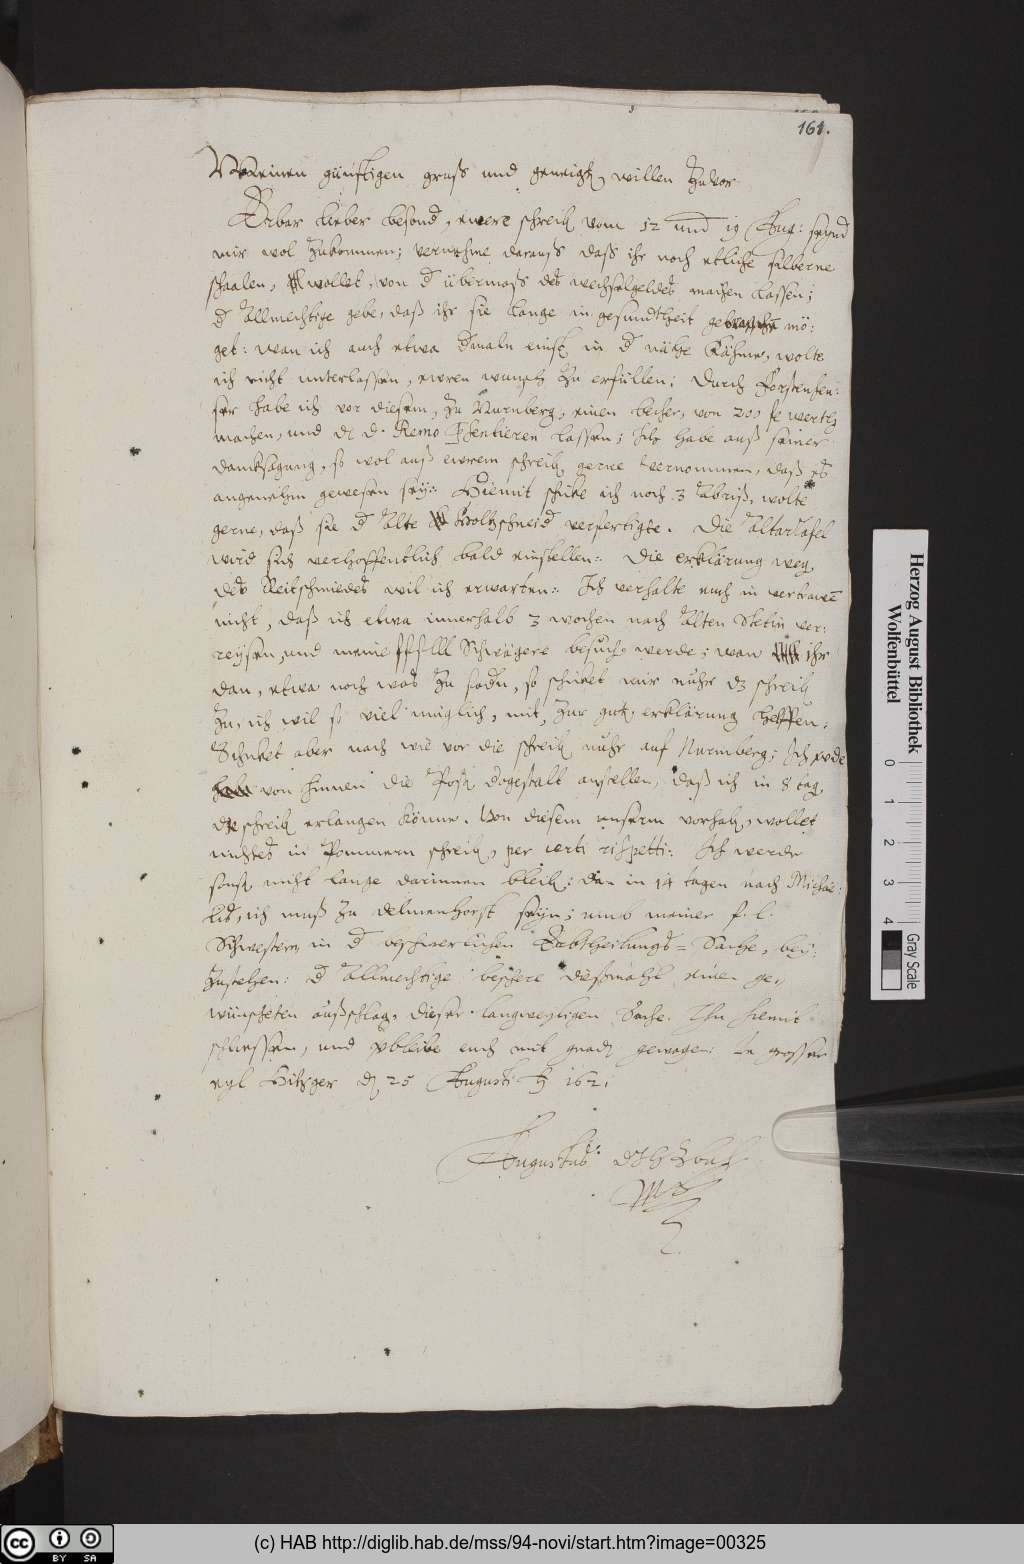 161.
Meinen günstigen gruß und geneigt willen zuvor
Erbar lieber besond, ewere schreib vom 12 und 19 Aug: seynd
mir wol zukommen; vernehme darauß daß ihr noch etliche silberne
schaalen, wollet, von d übermaß des wechselgeldes machen lassen;
d Allmechtige gebe, daß ihr sie lange in gesundtheit mö:
get: wan ich auch etwa dmaln einst in d nähe kähme, wolte
ich nicht unterlassen, ewren wunsch zu erfüllen; Durch Forstenheu:
ser habe ich vor diesem, zu Nurnberg, einen becher, von 200 fl werth
machen, und D. Remo lassen; Ich habe auß seiner
dancksagung, so wol auß ewrem schreib gerne vernommen, daß es
angenehm gewesen sey: Hiemit schike ich noch 3 Abriß, wolte
gerne, daß sie d Alte Holtzschneid verfertigte. Die AltarTafel
wird sich verhoffentlich bald einstellen: Die erklärung weg
des Reitschmiedes wil ich erwarten: Ich verhalte euch in vertrawe
nicht, daß ich etwa innerhalb 3 wochen nach Alten Stetin ver:
reysen, und meine Schwägere besuch werde; wan ihr
dan, etwa noch was zu, so schicket mir nuhr dz schreib
zu, ich wil so viel müglich, mit, zur gut erklärung helffen:
Schicket aber nach wie vor die schreib nuhr auf Nurmberg; Ich
von hinnen die Post dogestalt anstellen, daß ich in 8 tag
schreib erlangen könne. Von diesem unserm vorhab, wollet
nichtes in Pommern schreib, per certi rispetti: Ich werde
sonst nicht lange darinnen bleib: dan in 14 tagen nach Michae:
lis, ich muß zu delmenhorst seyn; umb meiner f. l.
Schwestern in d beschwerlichen Abtheilungs= Sache, bey:
zustehen: d Allmechtige beschere dießmahl einen ge:
wünscheten außschlag, dieser langweyligen Sache. Thu hiemit
schliessen, und bleibe euch mit gnad gewogen: In grosser
eyl Hitzger d 25 Augusti 1621
Augustus
(c) HAB http://diglib.hab.de/mss/94-novi/start.htm?image=00325
Herzog August Bibliothek
Wolfenbüttel
0 1 2 3 4
Gray Scale
cc BY SA